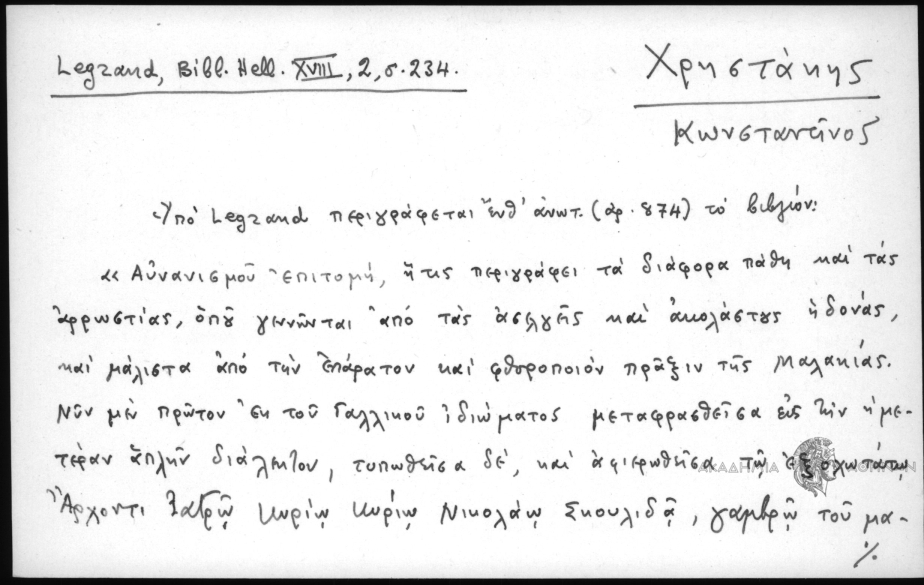 Legrand, Bibl. Hell. XVIII, 2, σ. 234.
Χρηστάκης
Κωνσταντῖνος
Ὑπὸ Legrand περιγράφεται ἔνθ' ἀνωτ. (ἀρ. 874) τὸ βιβλίον:
« Αὐνανισμοῦ Ἐπιτομή, ἥτις περιγράφει τὰ διάφορα πάθη καὶ τὰς
ἀρρωστίας, ὁποῦ γεννῶνται ἀπό τὰς ἀσελγεῖς καὶ ἀκολάστους ἡδονάς,
καὶ μάλιστα ἀπό τὴν ἐπάρατον καὶ φθοροποιὸν πρᾶξιν τῆς Μαλακίας.
Νῦν μὲν πρῶτον ἐκ τοῦ Γαλλικοῦ ἰδιώματος μεταφρασθεῖσα εἰς τὴν ἡμε-
τέραν ἁπλῆν διάλεκτον, τυπωθεῖσα δέ, καὶ ἀφιερωθεῖσα τῷ ἐξοχωτάτῳ
ΑΚΑΔΗΜΙΑ ΑΘΗΝΩΝ
Ἄρχοντι Ἰατρῷ Κυρίῳ Κυρίῳ Νικολάῳ Σκουλιδᾷ, γαμβρῷ τοῦ μα-
./.